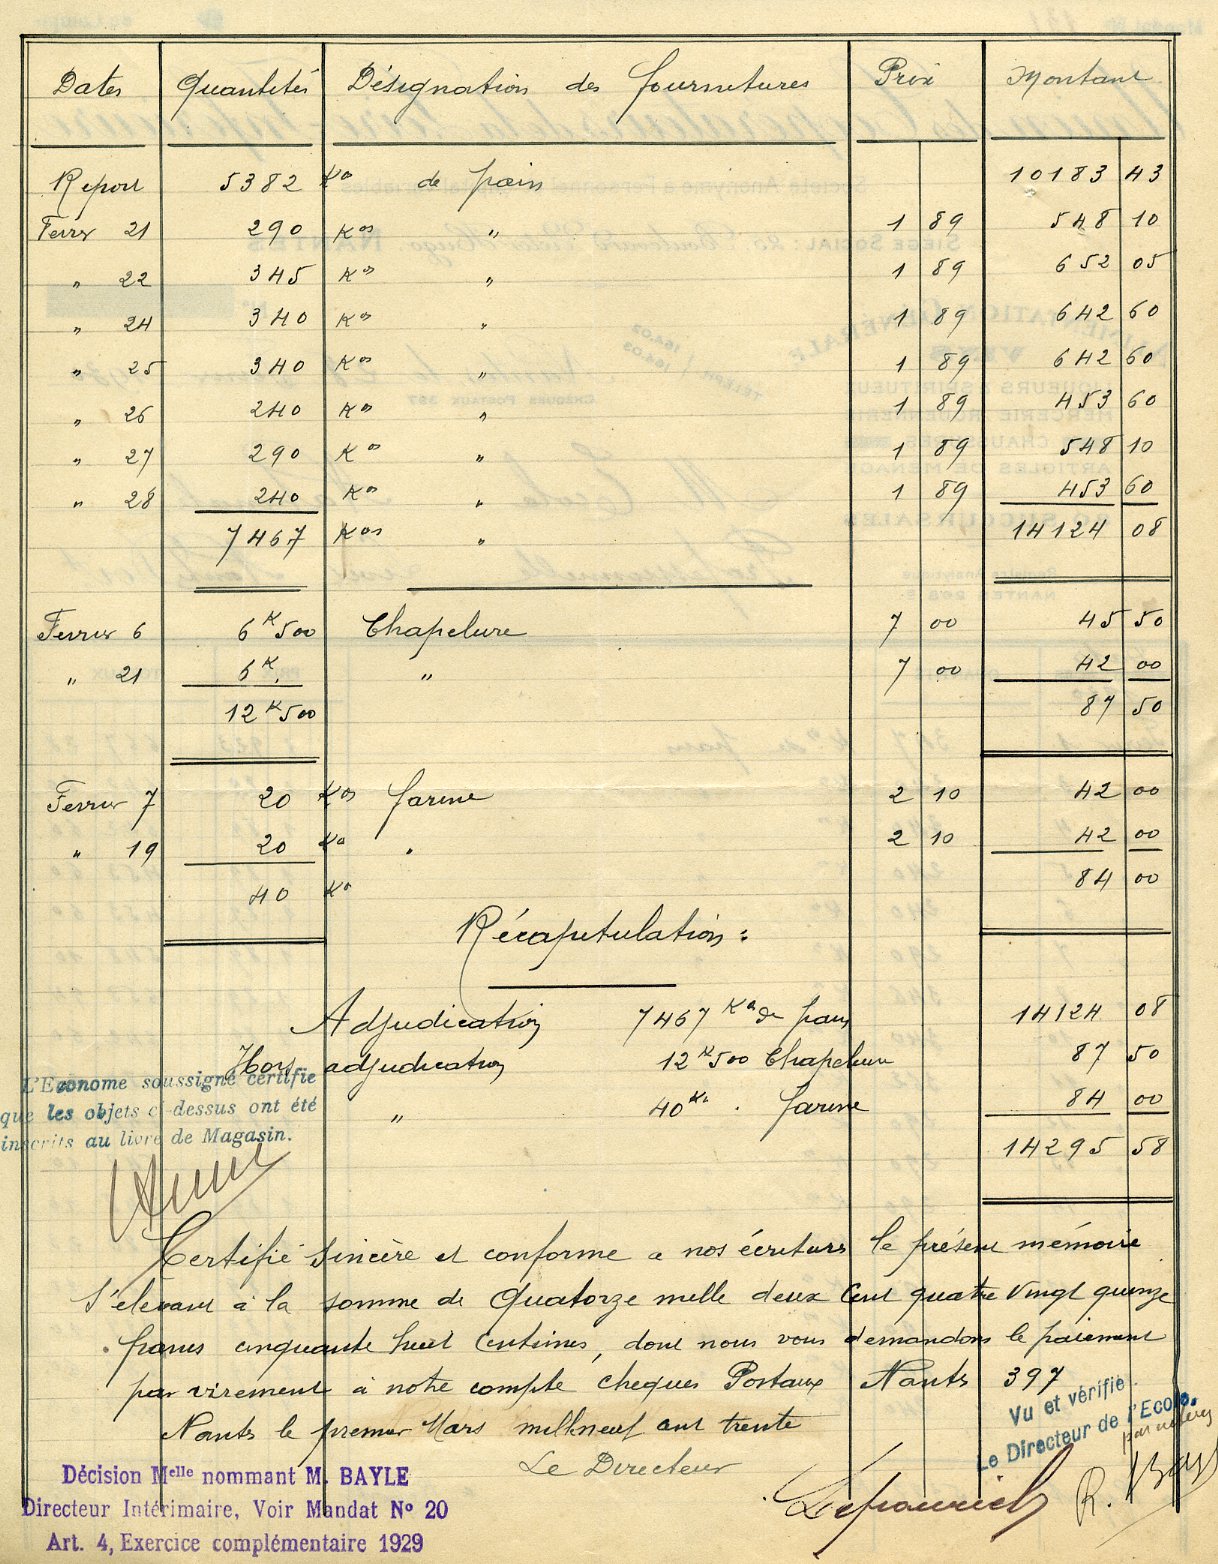 Dates Quantités Désignation des fournitures Prix Montant
Report 5382 Kos de pain 10183 43
Fevrier 21 290 Kos " 1 89 548 10
" 22 345 Kos " 1 89 652 05
" 24 340 Kos " 1 89 642 60
" 25 340 Kos " 1 89 642 60
" 26 240 Kos " 1 89 453 60
" 27 290 Kos " 1 89 548 10
" 28 240 Kos " 1 89 453 60
7467 Kos " 14124 08
Fevrier 6 6K500 Chapelure 7 00 45 50
" 21 6K. " 7 00 42 00
12K500 87 50
Fevrier 7 20 Kos farine 2 10 42 00
" 19 20 Kos " 2 10 42 00
40 Kos 84 00
Récapitulation :
Adjudication 7467 Kos de pain 14124 08
Hors adjudication 12K500 Chapelure 87 50
" 40 Kos . farine 84 00
14295 58
L'Econome soussigné certifie
que les objets ci-dessus ont été
inscrits au livre de Magasin.
Certifié sincère et conforme a nos écritures le présent mémoire
s'elevant à la somme de Quatorze mille deux Cent quatre Vingt quinze
francs cinquante huit Centimes, dont nous vous demandons le paiement
par virement à notre compte cheques Postaux Nantes 397
Nantes le premier Mars mil neuf cent trente
Le Directeur
Vu et vérifié.
Le Directeur de l'Ecole,
Décision Melle nommant M. BAYLE
Directeur Intérimaire, Voir Mandat No 20
Art. 4, Exercice complémentaire 1929